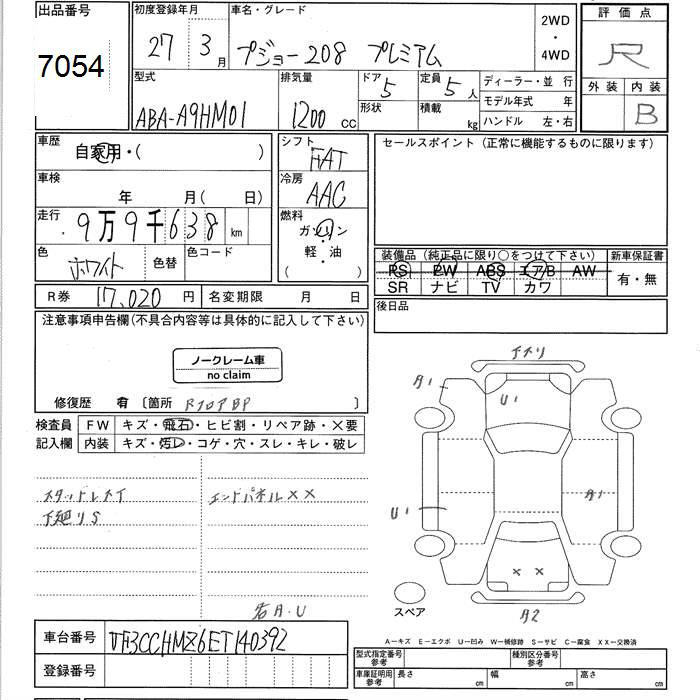 出品番号
7054
初度登録年月
27 3月
車名・グレード
プジョー208 プレミアム
2WD
・
4WD
評価点
R
外装 内装
B
型式
ABA-A9HM01
排気量
1200 cc
ドア
5
形状
定員
5人
積載
kg
ディーラー・並行
モデル年式 年
ハンドル 左・右
車歴
自家用・( )
車検
年 月( 日)
走行
9万9千638 km
色
ホワイト
色替
色コード
シフト
FAT
冷房
AAC
燃料
ガソリン
軽・油
( )
セールスポイント(正常に機能するものに限ります)
装備品(純正品に限り○をつけて下さい)
PS PW ABS エアB AW
SR ナビ TV カワ
新車保証書
有・無
R券 17,020円
名変期限 月 日
後日品
注意事項申告欄(不具合内容等は具体的に記入して下さい)
ノークレーム車
no claim
修復歴 有 〔箇所 RフロアBP 〕
検査員
記入欄
FW キズ・飛石・ヒビ割・リペア跡・×要
内装 キズ・汚レ・コゲ・穴・スレ・キレ・破レ
スタッドレスT
下廻リS
エンドパネル××
若A.U
A1
U1
A1
U1
××
A2
スペア
A−キズ E−エクボ U−凹み W−補修跡 S−サビ C−腐食 XX−交換済
車台番号
VF3CCHMZ6ET140392
登録番号
型式指定番号
参考
種別区分番号
参考
車庫証明用
参考
長さ cm 幅 cm 高さ cm